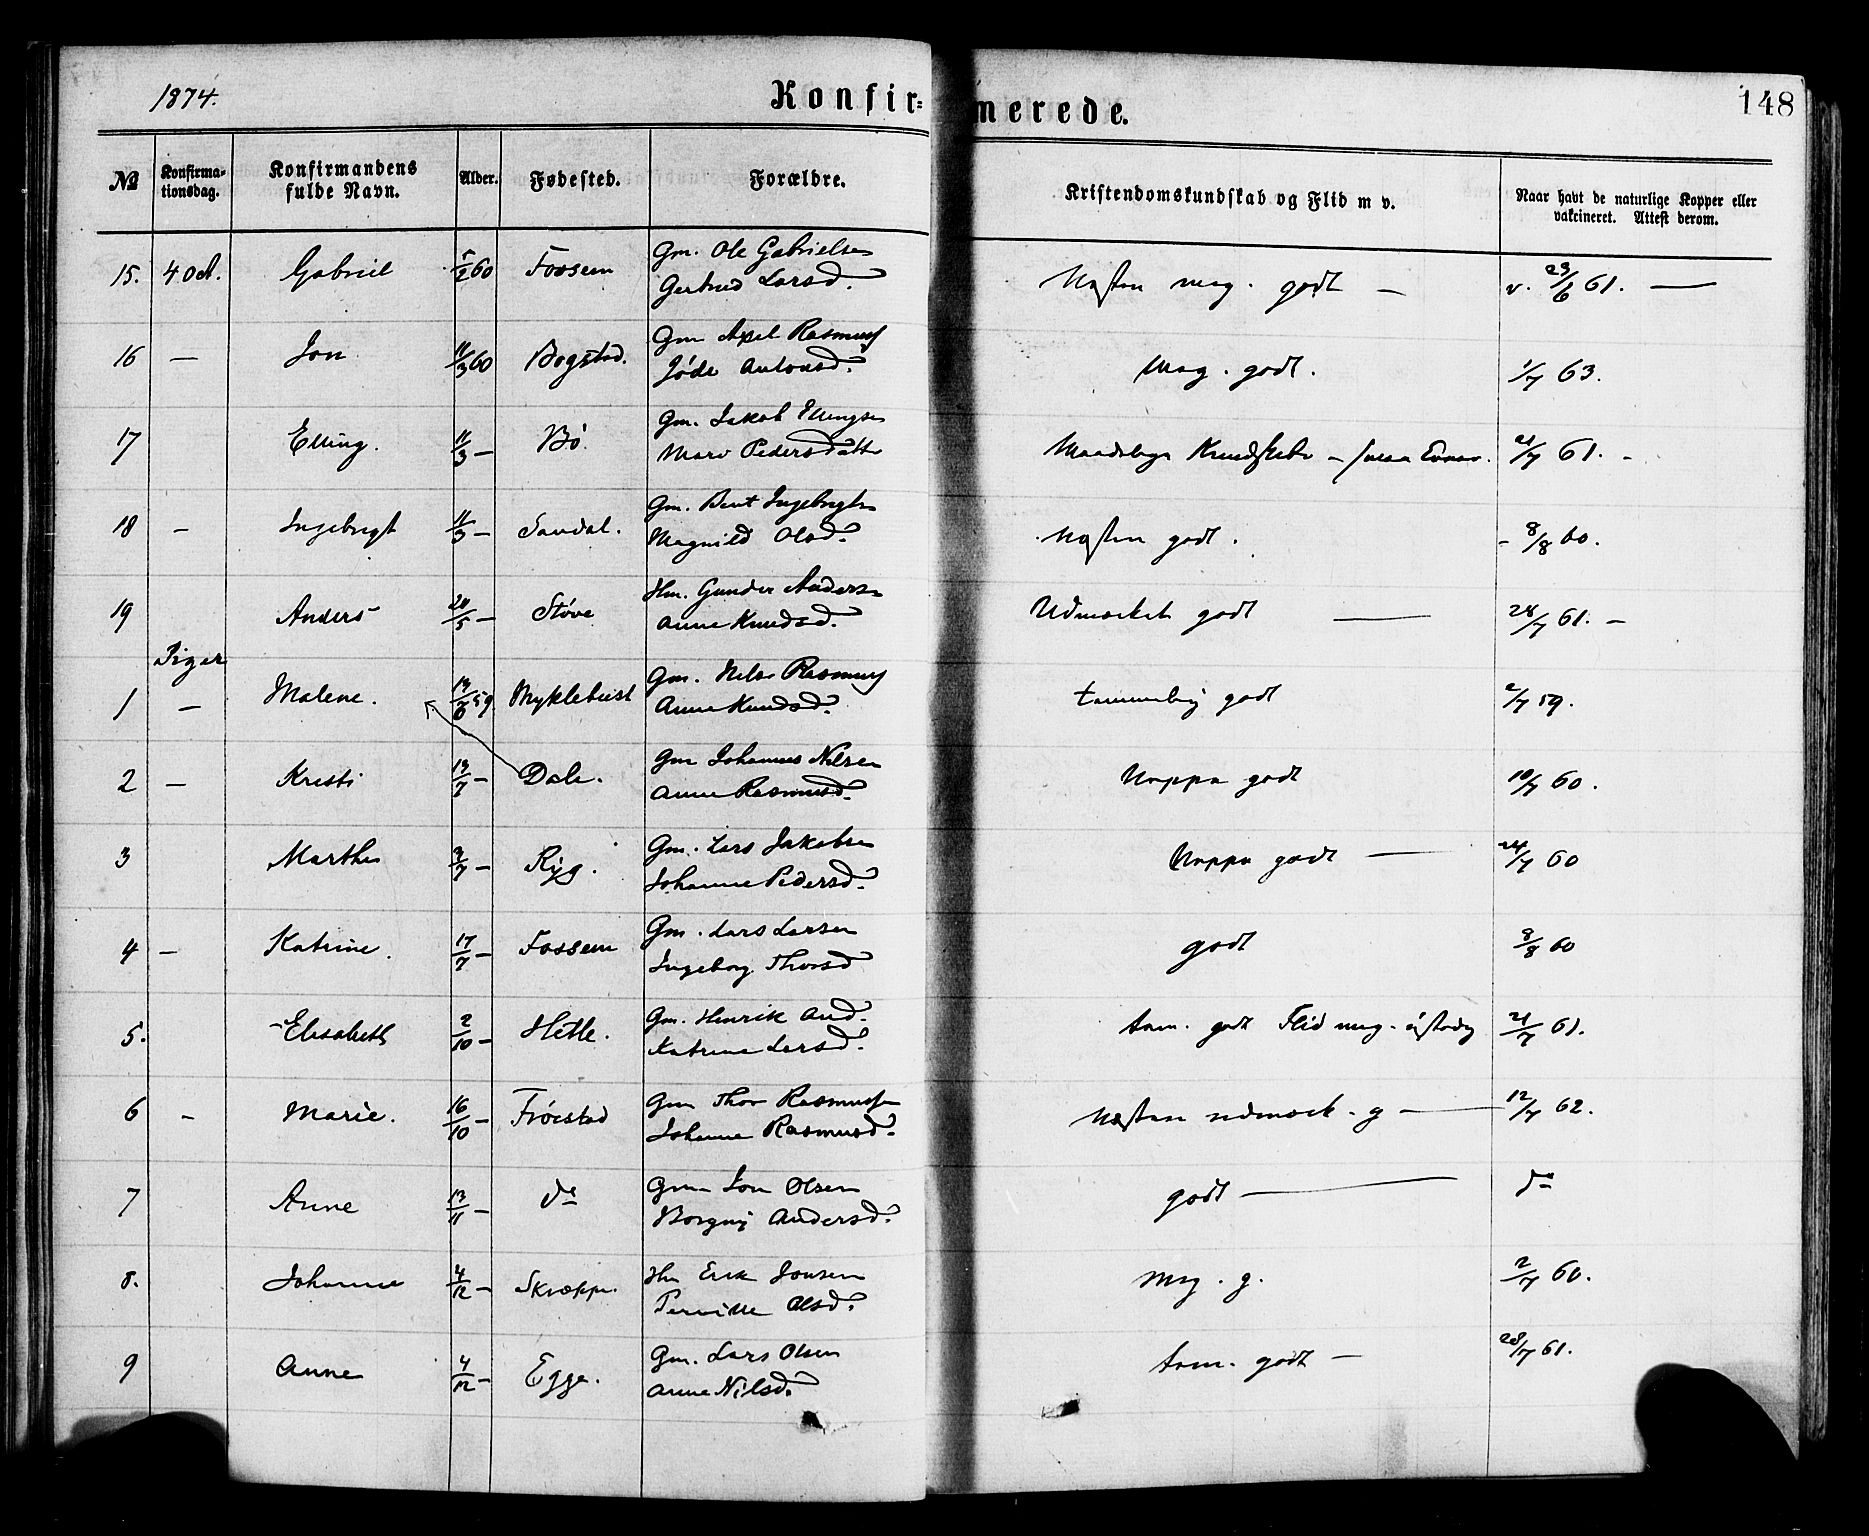 1874.
Konfir=
merede.
148
№
Konfirma-
tionsdag.
Konfirmandens
fulde Navn.
Alder.
Fødested.
Forældre.
Kristendomskundskab og Flid m v.
Naar havt de naturlige Kopper eller
vakcineret. Attest derom.
15. 4 Oct. Gabriel 5/2 60 Fossem Gm. Ole Gabrielsen
Gertrud Larsd. Næsten meg. godt — v. 23/6 61. —
16 — Jon 11/3 60 Bogstad. Gm Axel Rasmuss
Jøde Antonsd. Meg. godt. 1/7 63.
17 Elling. 11/3 — Bø. Gm. Jakob Ellingsen
Mari Pedersdatt Maadelige Kundskaber — 21/7 61. -
18 — Ingebrigt 11/3 — Sandal. Gm. Bent Ingebrigtsn
Magnild Olsd. Næsten godt. - 8/8 60.
19 Anders 20/5 — Støve Hm. Gunder Andersn
Anne Knudsd. Udmærket godt — 24/7 61. —
Piger
1 — Malene. 59 Myklebust Gm. Nels Rasmuss
Anne Knudsd. temmelig godt 2/7 59.
2 — Kristi 13/7 — Dale. Gm Johannes Nilsen
Anne Rasmusd. Neppe godt 10/7 60.
3 Marthe 3/7 — Ryg. Gm. Lars Jakobsen
Johanne Pedersd. Neppe godt — 24/7 60
4 — Katrine. 17/7 — Fossem Gm. Lars Larsen
Ingeborg Thorsd godt 8/8 60
5. Elisabeth 2/10 — Hetle. Gm. Henrik And.
Katrine Larsd. tem. godt Flid meg. 21/7 61.
6 — Marie. 16/10 — Frøistad Gm Thor Rasmussen
Johanne Rasmusd. Næsten udmærk. g — 12/7 62.
7 Anne 13/11 — do Gm Jon Olsen
Borgny Andersd. godt — do
8. Johanne 4/12 — Skræppe. Hm Erik Jonsen
Pernille Olsd. Meg. g. 2/7 60.
9 Anne 4/12 — Egge. Gm. Lars Olsen
Anne Nilsd. tem. godt — 28/7 61.